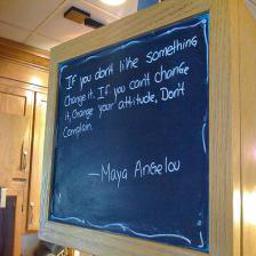 If you don't like something
Change it. If you can't change
it, Change your attitude, Don't
Complain.
—Maya Angelou